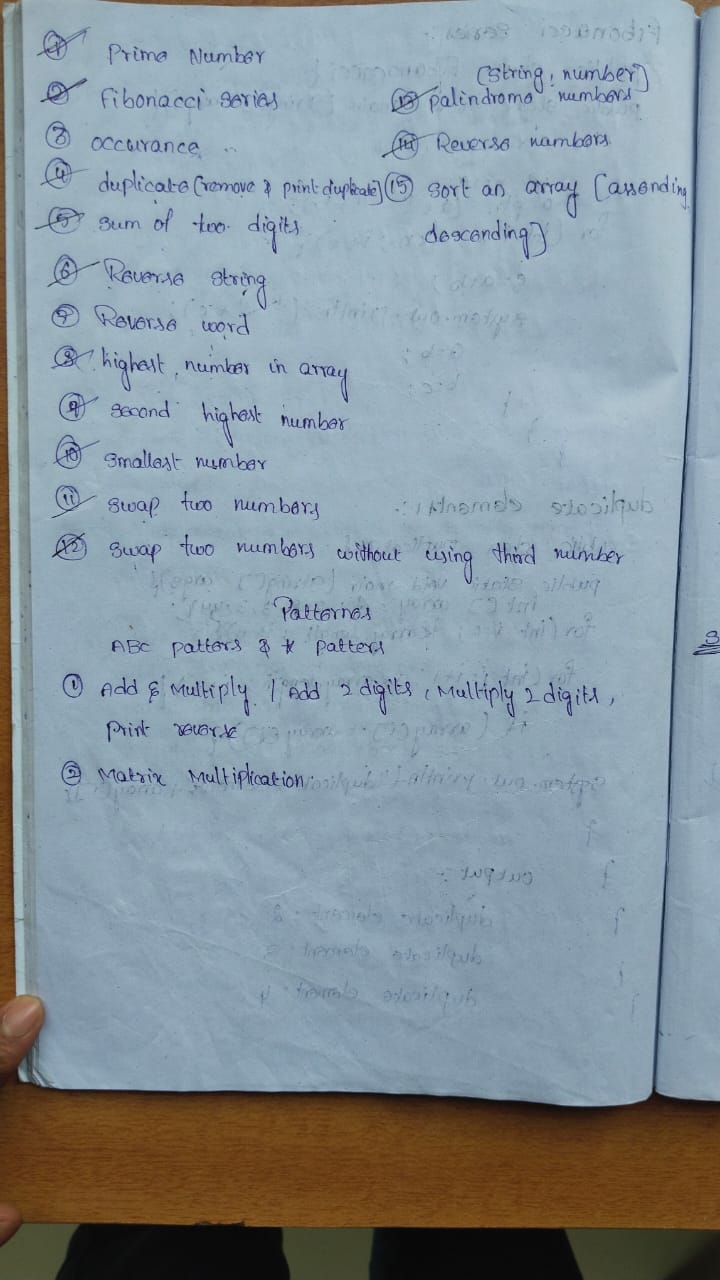 ① Prime Number
② Fibonacci series
③ occurance ..
④ duplicate [remove & print duplicate]
⑤ sum of two digits
⑥ Reverse string
⑦ Reverse word
⑧ highest number in array
⑨ second highest number
⑩ smallest number
⑪ swap two numbers
⑫ swap two numbers without using third number
[string, number]
⑬ palindrome numbers
⑭ Reverse numbers
⑮ sort an array [assending
descending]
Patternes
ABC patters & * patters
① Add & Multiply / Add 2 digits, Multiply 2 digits,
print reverse
② Matrix Multiplication.